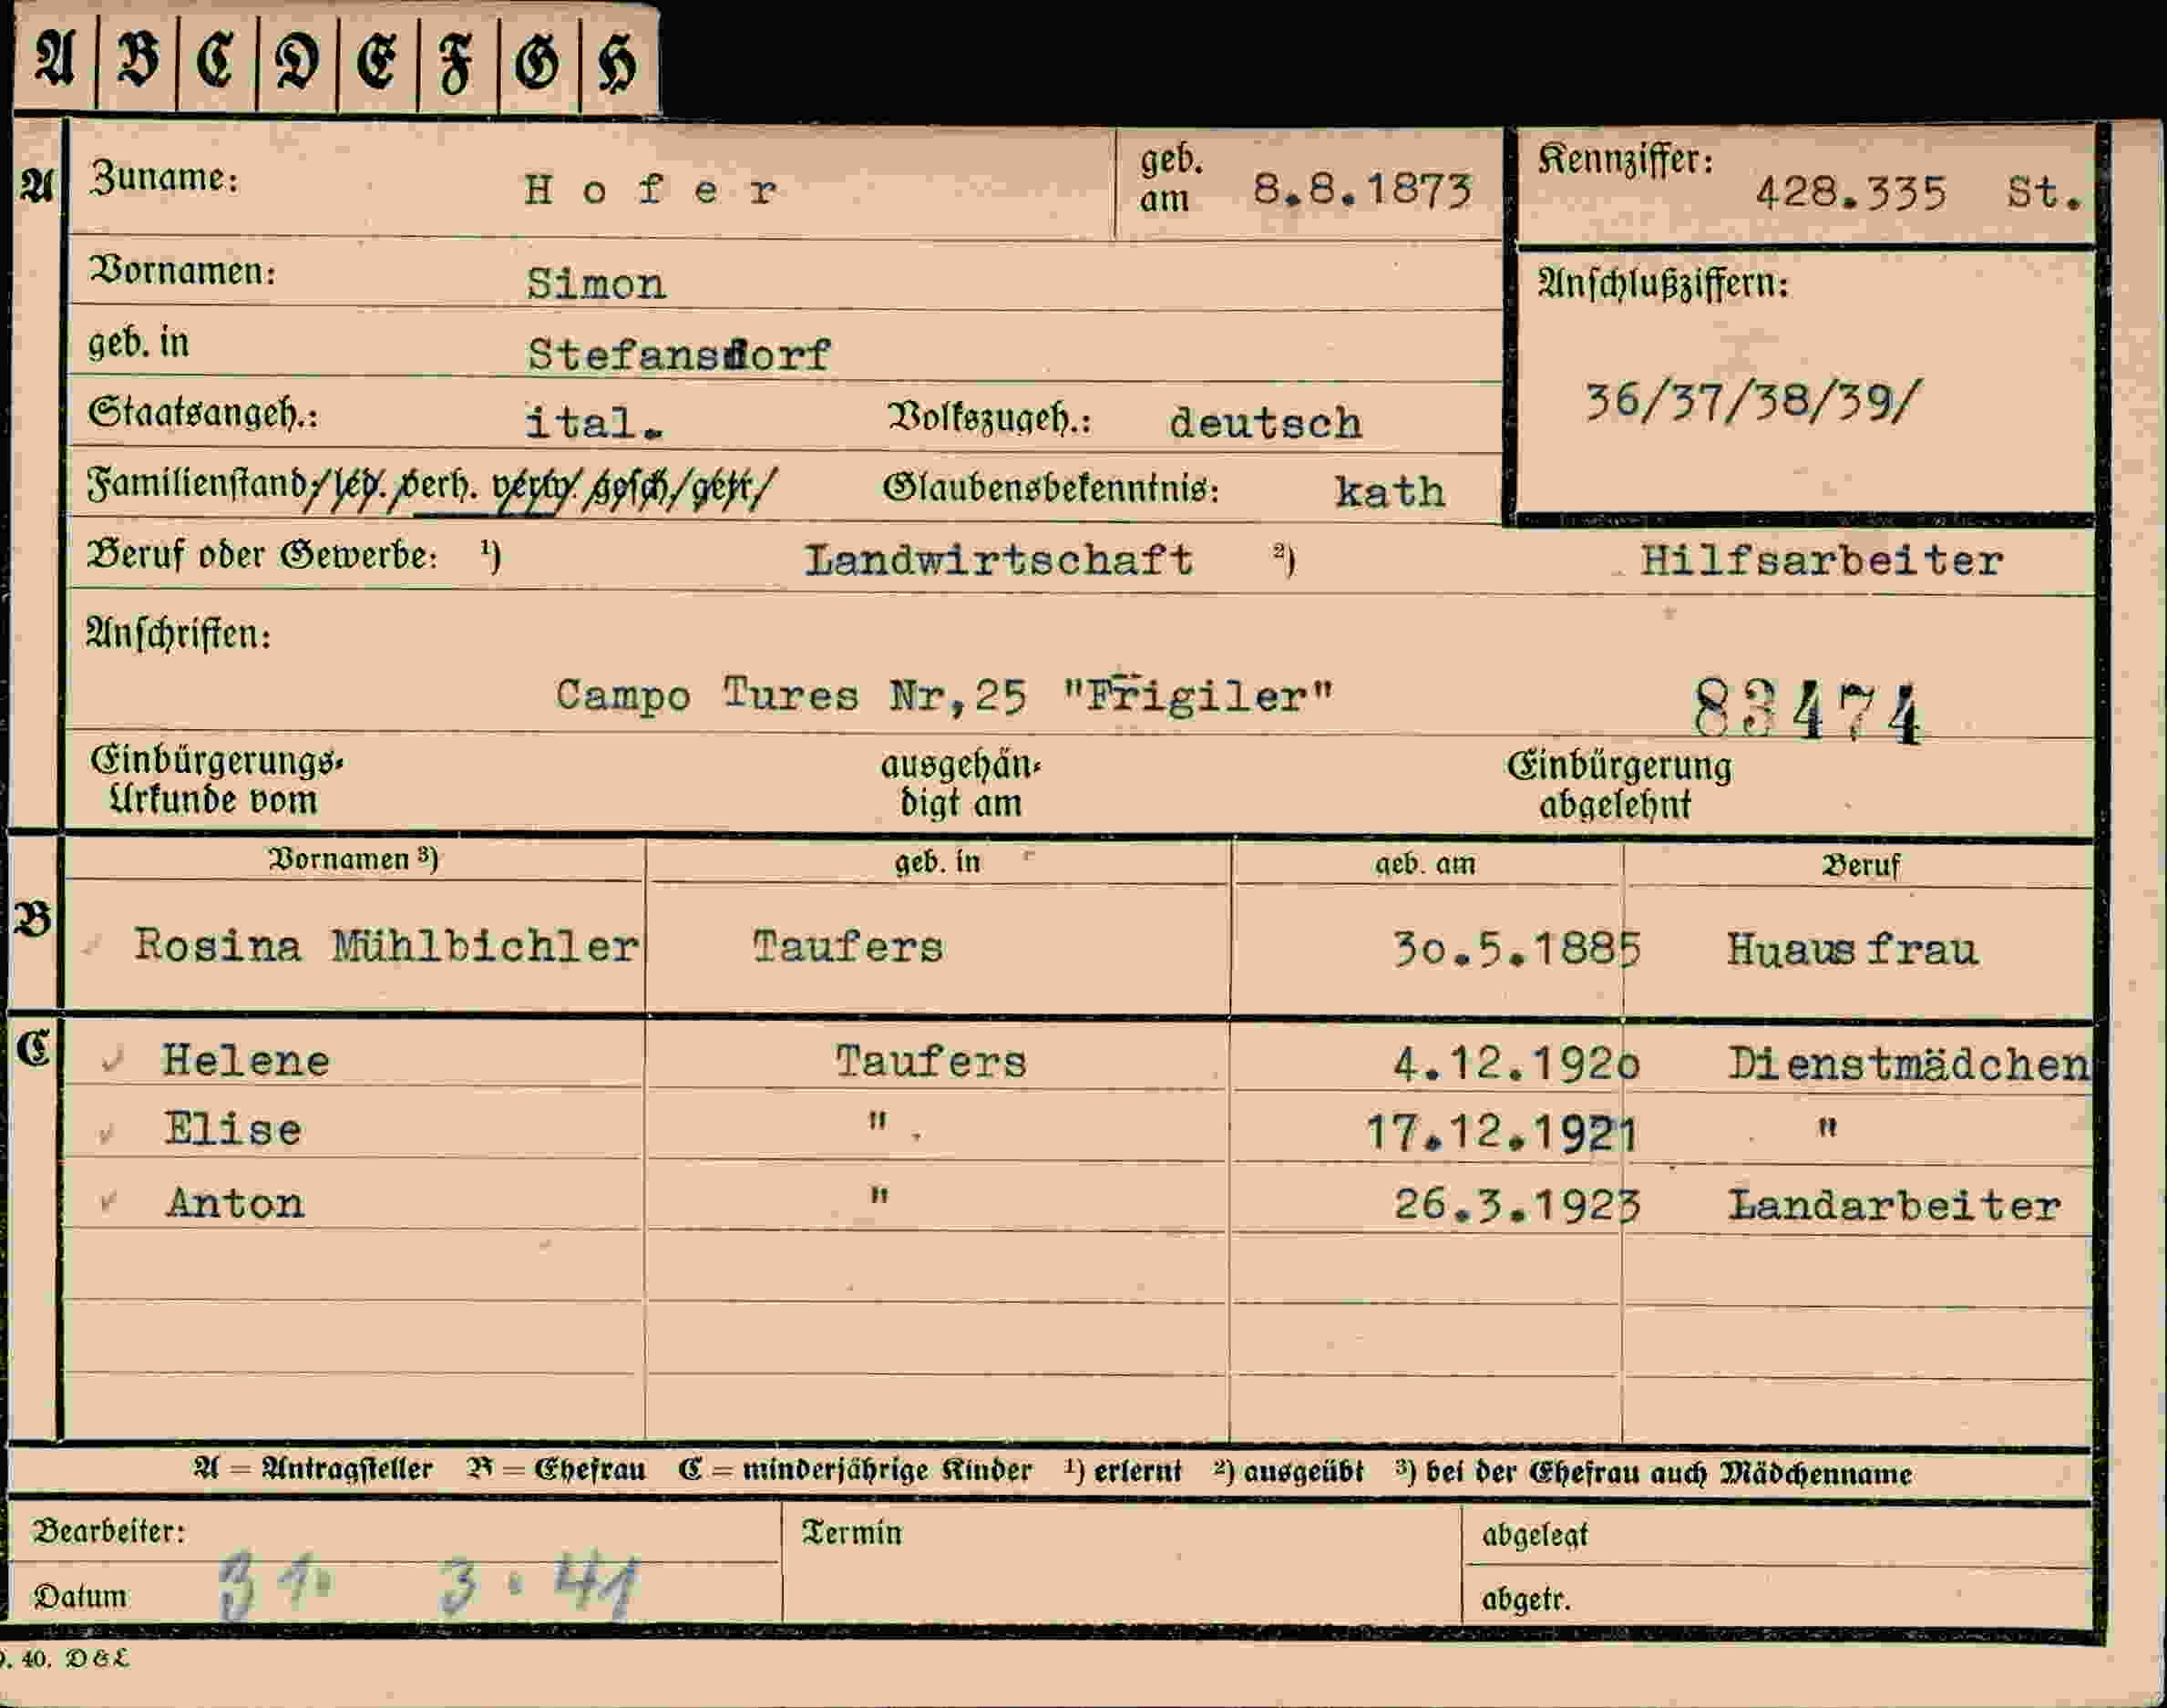 A B C D E F G H
A Zuname: Hofer geb. am 8.8.1873 Kennziffer: 428.335 St.
Vornamen: Simon Anschlußziffern:
geb. in Stefansdorf
36/37/38/39/
Staatsangeh.: ital. Volkszugeh.: deutsch
Familienstand: led. verh. verw. gesch. getr. Glaubensbekenntnis: kath
Beruf oder Gewerbe: 1) Landwirtschaft 2) Hilfsarbeiter
Anschriften:
Campo Tures Nr,25 "Frigiler" 83474
Einbürgerungs- ausgehän- Einbürgerung
Urkunde vom digt am abgelehnt
Vornamen 3) geb. in geb. am Beruf
B Rosina Mühlbichler Taufers 30.5.1885 Huausfrau
C Helene Taufers 4.12.1920 Dienstmädchen
Elise " 17.12.1921 "
Anton " 26.3.1923 Landarbeiter
A = Antragsteller B = Ehefrau C = minderjährige Kinder 1) erlernt 2) ausgeübt 3) bei der Ehefrau auch Mädchenname
Bearbeiter: Termin abgelegt
Datum 31. 3. 41 abgetr.
40. D & L